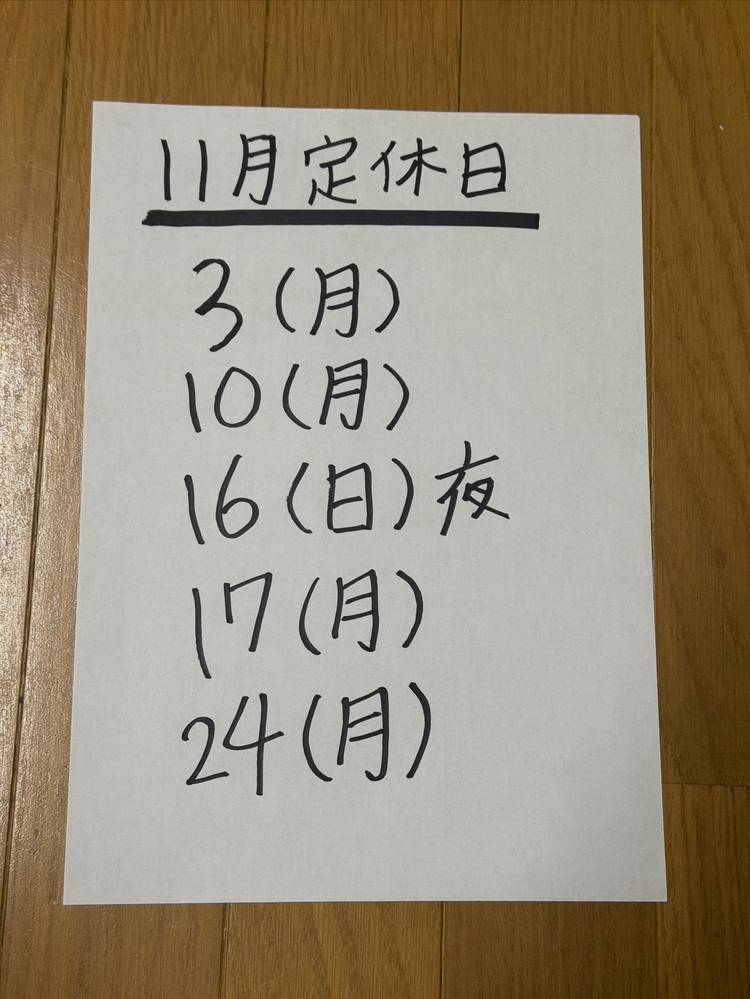 11月定休日
3(月)
10(月)
16(日)夜
17(月)
24(月)